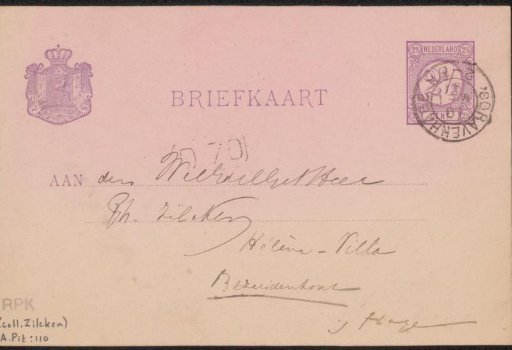 NEDERLAND
'SGRAVENHAGE
BRIEFKAART
AAN den WelEdelGeb. Heer
Ph. Zilcken
Hélène-Villa
Bezuidenhout
's Hage
RPK
(coll. Zilcken)
A.Pit: 110